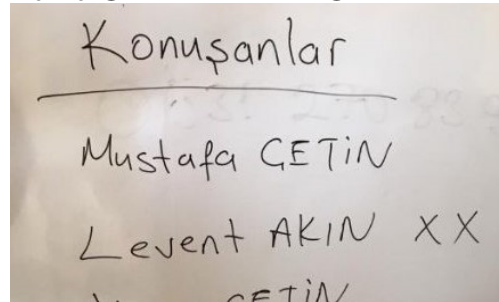 Konuşanlar
Mustafa ÇETİN
Levent AKIN XX
ÇETİN